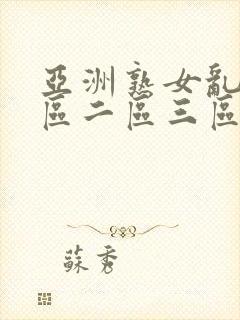 亞洲熟女亂
區二區三區
蘇秀